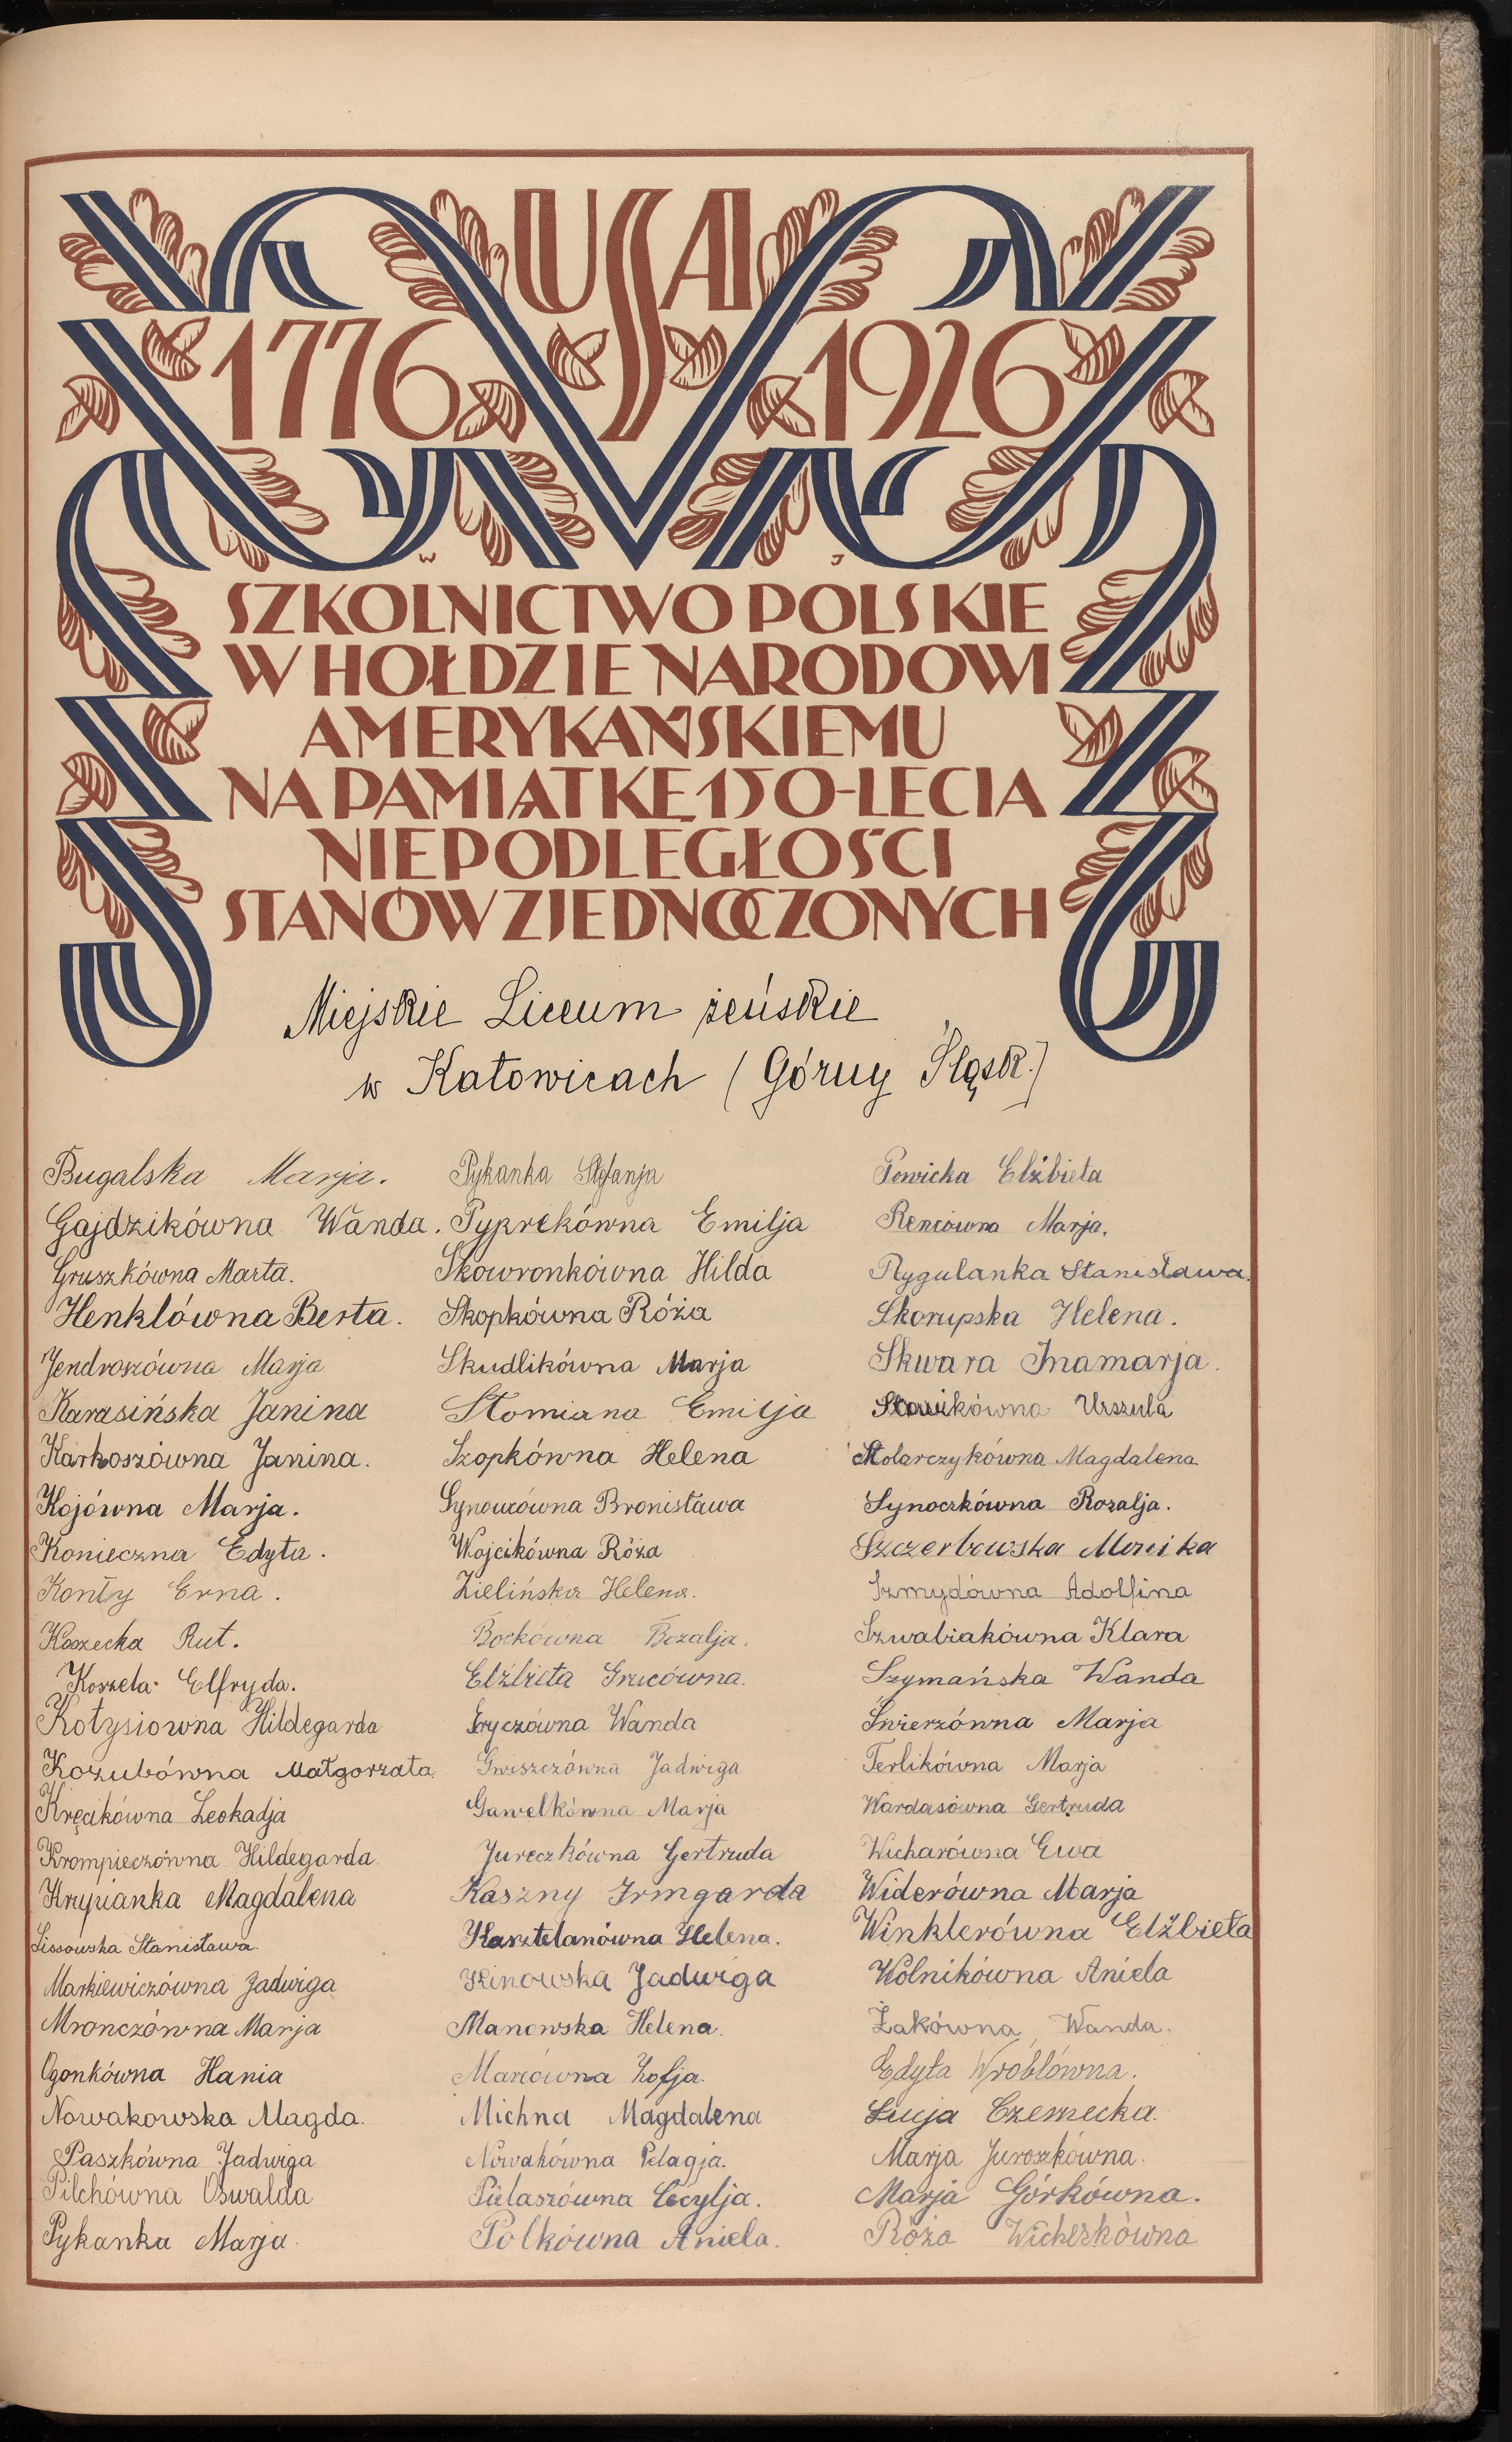 USA
1776 1926
W J
SZKOLNICTWO POLSKIE
W HOŁDZIE NARODOWI
AMERYKAŃSKIEMU
NA PAMIĄTKĘ 150-LECIA
NIEPODLEGŁOŚCI
STANÓW ZJEDNOCZONYCH
Miejskie Liceum żeńskie
w Katowicach (Górny Śląsk.)
Bugalska Marja.
Gajdzikówna Wanda.
Gruszkówna Marta.
Henklówna Berta.
Jendroszówna Marja
Karasińska Janina
Karkoszówna Janina.
Kojówna Marja.
Konieczna Edyta.
Konty Erna.
Koszecka Rut.
Koszela Elfryda.
Kotysiowna Hildegarda
Kozubówna Małgorzata
Kręcikówna Leokadja
Krompieczówna Hildegarda
Krypianka Magdalena
Lissowska Stanisława.
Markiewiczówna Jadwiga
Mronczówna Marja
Ogonkówna Hania
Nowakowska Magda.
Paszkówna Jadwiga
Pilchówna Oswalda
Pykanka Marja.
Pykanka Stefanja
Pyprekówna Emilja
Skowronkówna Hilda
Skopkówna Róża
Skudlikówna Marja
Słomiana Emilja
Szopkówna Helena
Synowcówna Bronisława
Wojcikówna Róża
Zielińska Helena.
Bockówna Rozalja.
Elżbieta Grucówna.
Gryczówna Wanda
Gwiszczówna Jadwiga
Gawelkówna Marja
Jureczkówna Gertruda
Kaszny Irmgarda
Kasztelanówna Helena.
Klinowska Jadwiga
Manowska Helena.
Marcówna Zofja.
Michna Magdalena
Nowakówna Pelagja.
Pielaszówna Cecylja.
Polkówna Aniela.
Powicka Elżbieta
Rencówna Marja.
Rygulanka Stanisława.
Skorupska Helena.
Skwara Inamarja.
Słowikówna Urszula
Stolarczykówna Magdalena
Synoczkówna Rozalja.
Szczerbowska Monika
Szmydówna Adolfina
Szwabiakówna Klara
Szymańska Wanda
Świerzówna Marja
Terlikówna Marja
Wardasówna Gertruda
Wicharówna Ewa
Widerówna Marja
Winklerówna Elżbieta
Wolnikówna Aniela
Żakówna, Wanda.
Edyta Wróblówna.
Łucja Czernecka.
Marja Juroszkówna.
Marja Górkówna.
Róża Wicherkówna